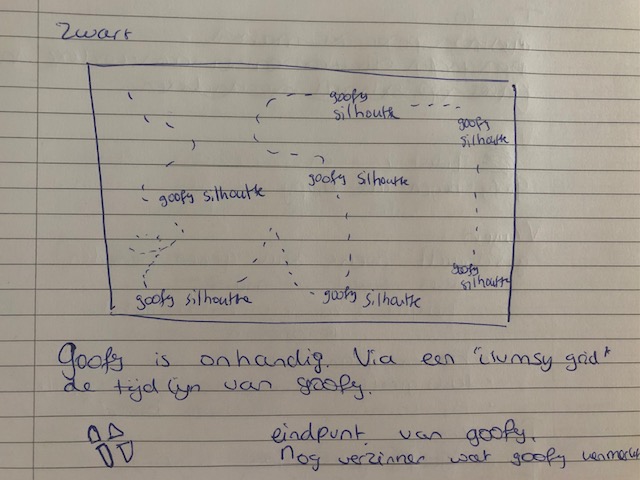 Zwart
goofy
silhoutte
goofy
silhoutte
goofy silhoutte
goofy silhoutte
goofy
silhoutte
goofy silhoutte
goofy silhoutte
Goofy is onhandig. Via een "clumsy grid"
de tijdlijn van goofy.
eindpunt van goofy.
nog verzinnen wat goofy